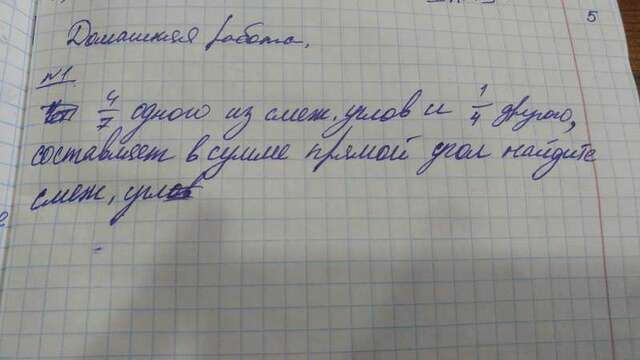 5
Домашняя работа.
№1
4/7 одного из смеж. углов и 1/4 другого,
составляет в сумме прямой угол найдите
смеж, угл